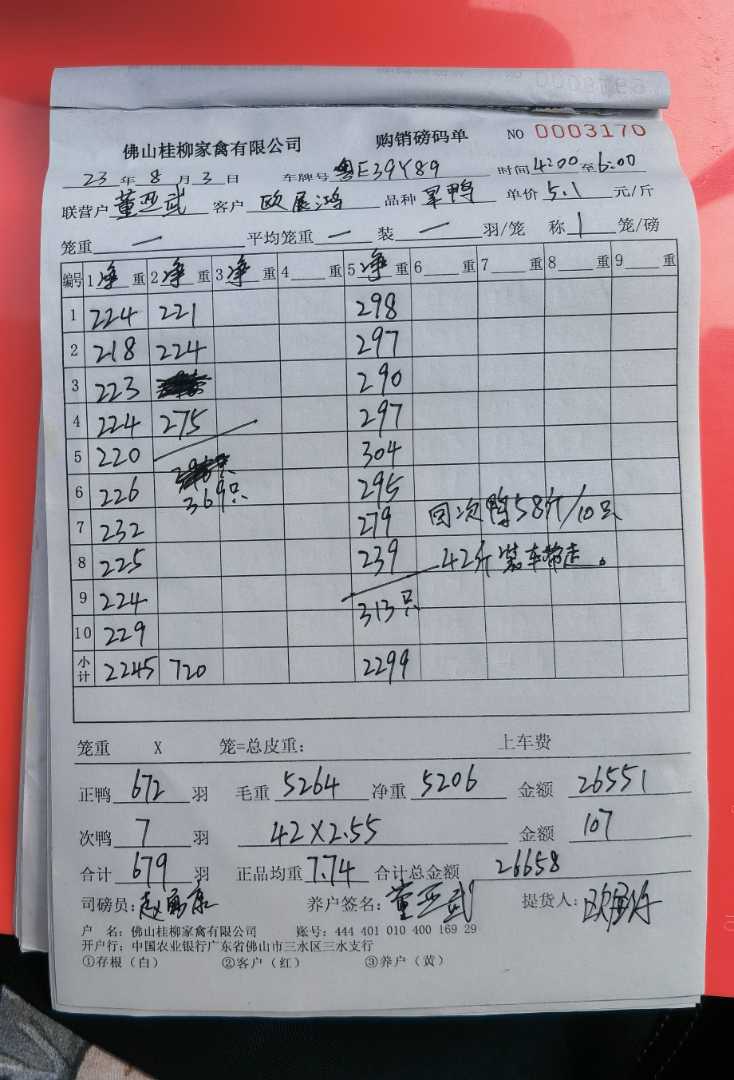 佛山桂柳家禽有限公司 购销磅码单 NO 0003170
23 年 8 月 3 日 车牌号 粤E39Y89 时间 4:00 至 6:00
联营户 董亚武 客户 欧展鸿 品种 旱鸭 单价 5.1 元/斤
笼重 一 平均笼重 一 装 一 羽/笼 称 1 笼/磅
编号 1 净 重 2 净 重 3 净 重 4 重 5 净 重 6 重 7 重 8 重 9 重
1 224 221 298
2 218 224 297
3 223 290
4 224 275 297
5 220 304
6 226 369只 295
7 232 279 回次鸭58斤/10只
8 225 239 42斤装车带走。
9 224 313只
10 229
小计 2245 720 2299
笼重 X 笼=总皮重: 上车费
正鸭 672 羽 毛重 5264 净重 5206 金额 26551
次鸭 7 羽 42X2.55 金额 107
合计 679 羽 正品均重 7.74 合计总金额 26658
司磅员: 养户签名: 董亚武 提货人:
户 名: 佛山桂柳家禽有限公司 账号: 444 401 010 400 169 29
开户行: 中国农业银行广东省佛山市三水区三水支行
①存根(白) ②客户(红) ③养户(黄)